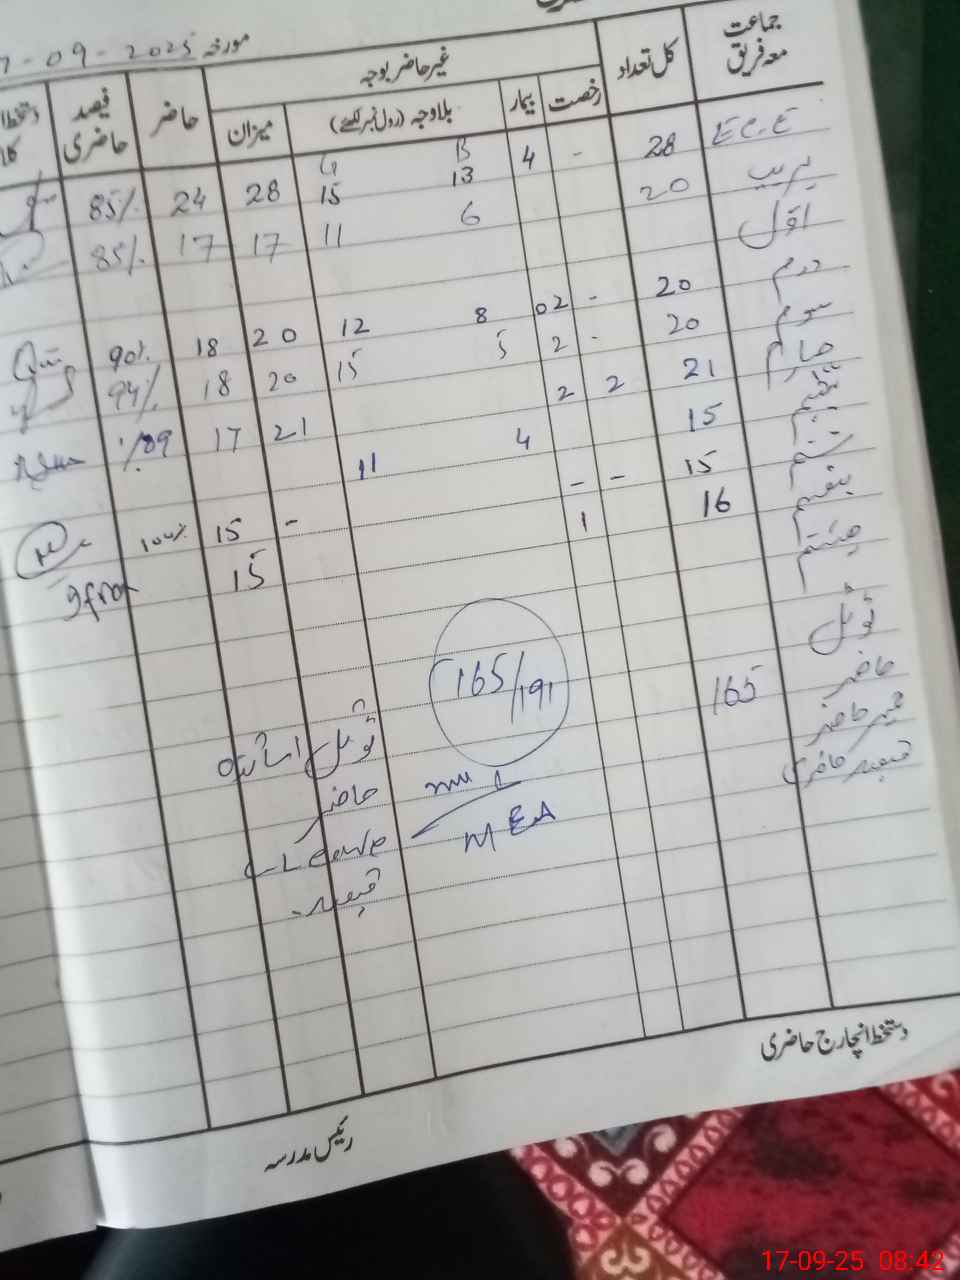 مورخہ 2025 - 09 - 7
جماعت معہ فریق کل تعداد غیر حاضر بوجہ حاضر فیصد حاضری دستخط
رخصت بیمار بلاوجہ (رول نمبر لکھئے) میزان
B G
E C.E 28 - 4 13 15 28 24 85%
پریپ 20 6 11 17 17 85%
اول
دوم 20 - 02 8 12 20 18 90%
سوم 20 - 2 5 15 20 18 94%
چہارم 21 2 2 21 17 89%
پنجم 15 4 11
ششم 15 - - - 15 100%
ہفتم 16 1 15 Iqra
ہشتم
ٹوٹل
حاضر 165 165/191
غیر حاضر
فیصد حاضری
ٹوٹل اساتذہ
حاضر
Leave MEA
فیصد
دستخط انچارج حاضری
رئیس مدرسہ
17-09-25 08:42